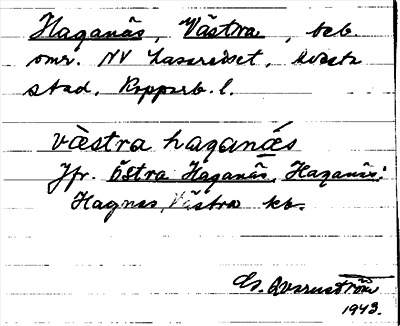 Haganäs, Västra, beb.
omr. NV Lasarettet,
stad. Kopparb. l.
västra haganäs
Jfr. Östra Haganäs, Haganäs;
Hagnäs, Västra kv.
1943.